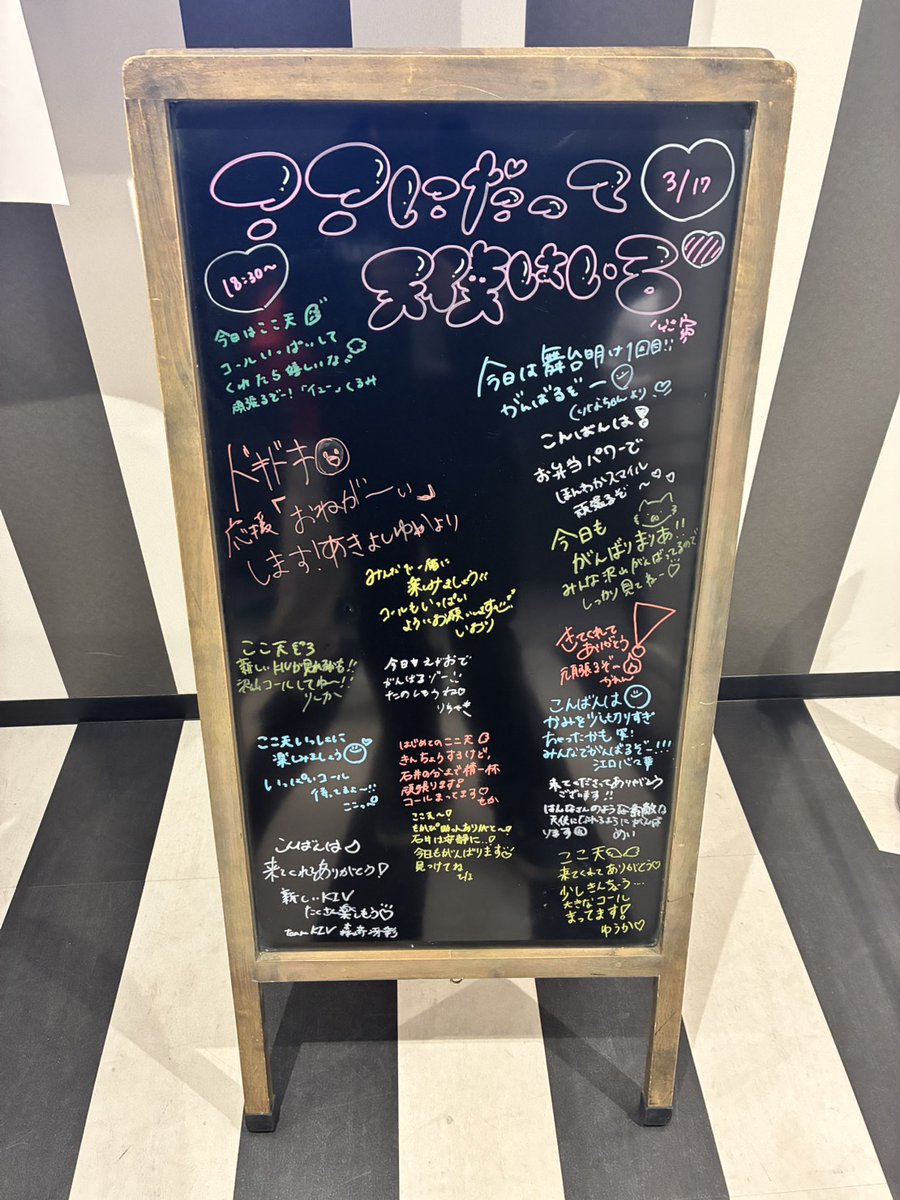 ここにだって
3/17
天使はいる
18:30～
今日はここ天
コールいっぱいして
くれたら嬉しいな
頑張るぞー!「イエー」くるみ
今日は舞台明け1回目!!
がんばるぞー
こんばんは!
お弁当パワーで
ほんわかスマイル
頑張るぞ～
ドキドキ
応援「おねが～い」
します!あきよしゆかより
今日も
がんばりまりあ!!
みんな沢山がんばってるので
しっかり見てねー♡
みんなで一緒に
楽しみましょう!!
コールもいっぱい
いおり
きてくれて
ありがとう
頑張るぞー
かれん
ここ天ぞろ
沢山コールしてね～!!
りーか
今日もえがおで
がんばるゾー!!
たのしもうね♡
りちゃ
こんばんは
かみを少しも切りすぎ
ちゃったかも 笑!
みんなでがんばるぞー!!!
江口心々華
ここ天いっしょに
楽しみましょう
いっぱいコール
待ってるよ～!!
ここっ
はじめてのここ天
きんちょうするけど、
石井の分まで精一杯
頑張ります!
コールまってます♡
もか
来てくださってありがとう
ございます!!
はんなさんのような素敵な
天使になれるようにがんば
ります
めい
ここ天～♡
石井は安静に...!
今日もがんばります
見つけてね
こんばんは♪
来てくれてありがとう!
新しいKIV
たくさん楽しもう♡
team KIV 森﨑冴彩
ここ天
来てくれてありがとう♡
少しきんちょう...
大きなコール
まってます!
ゆうか♡